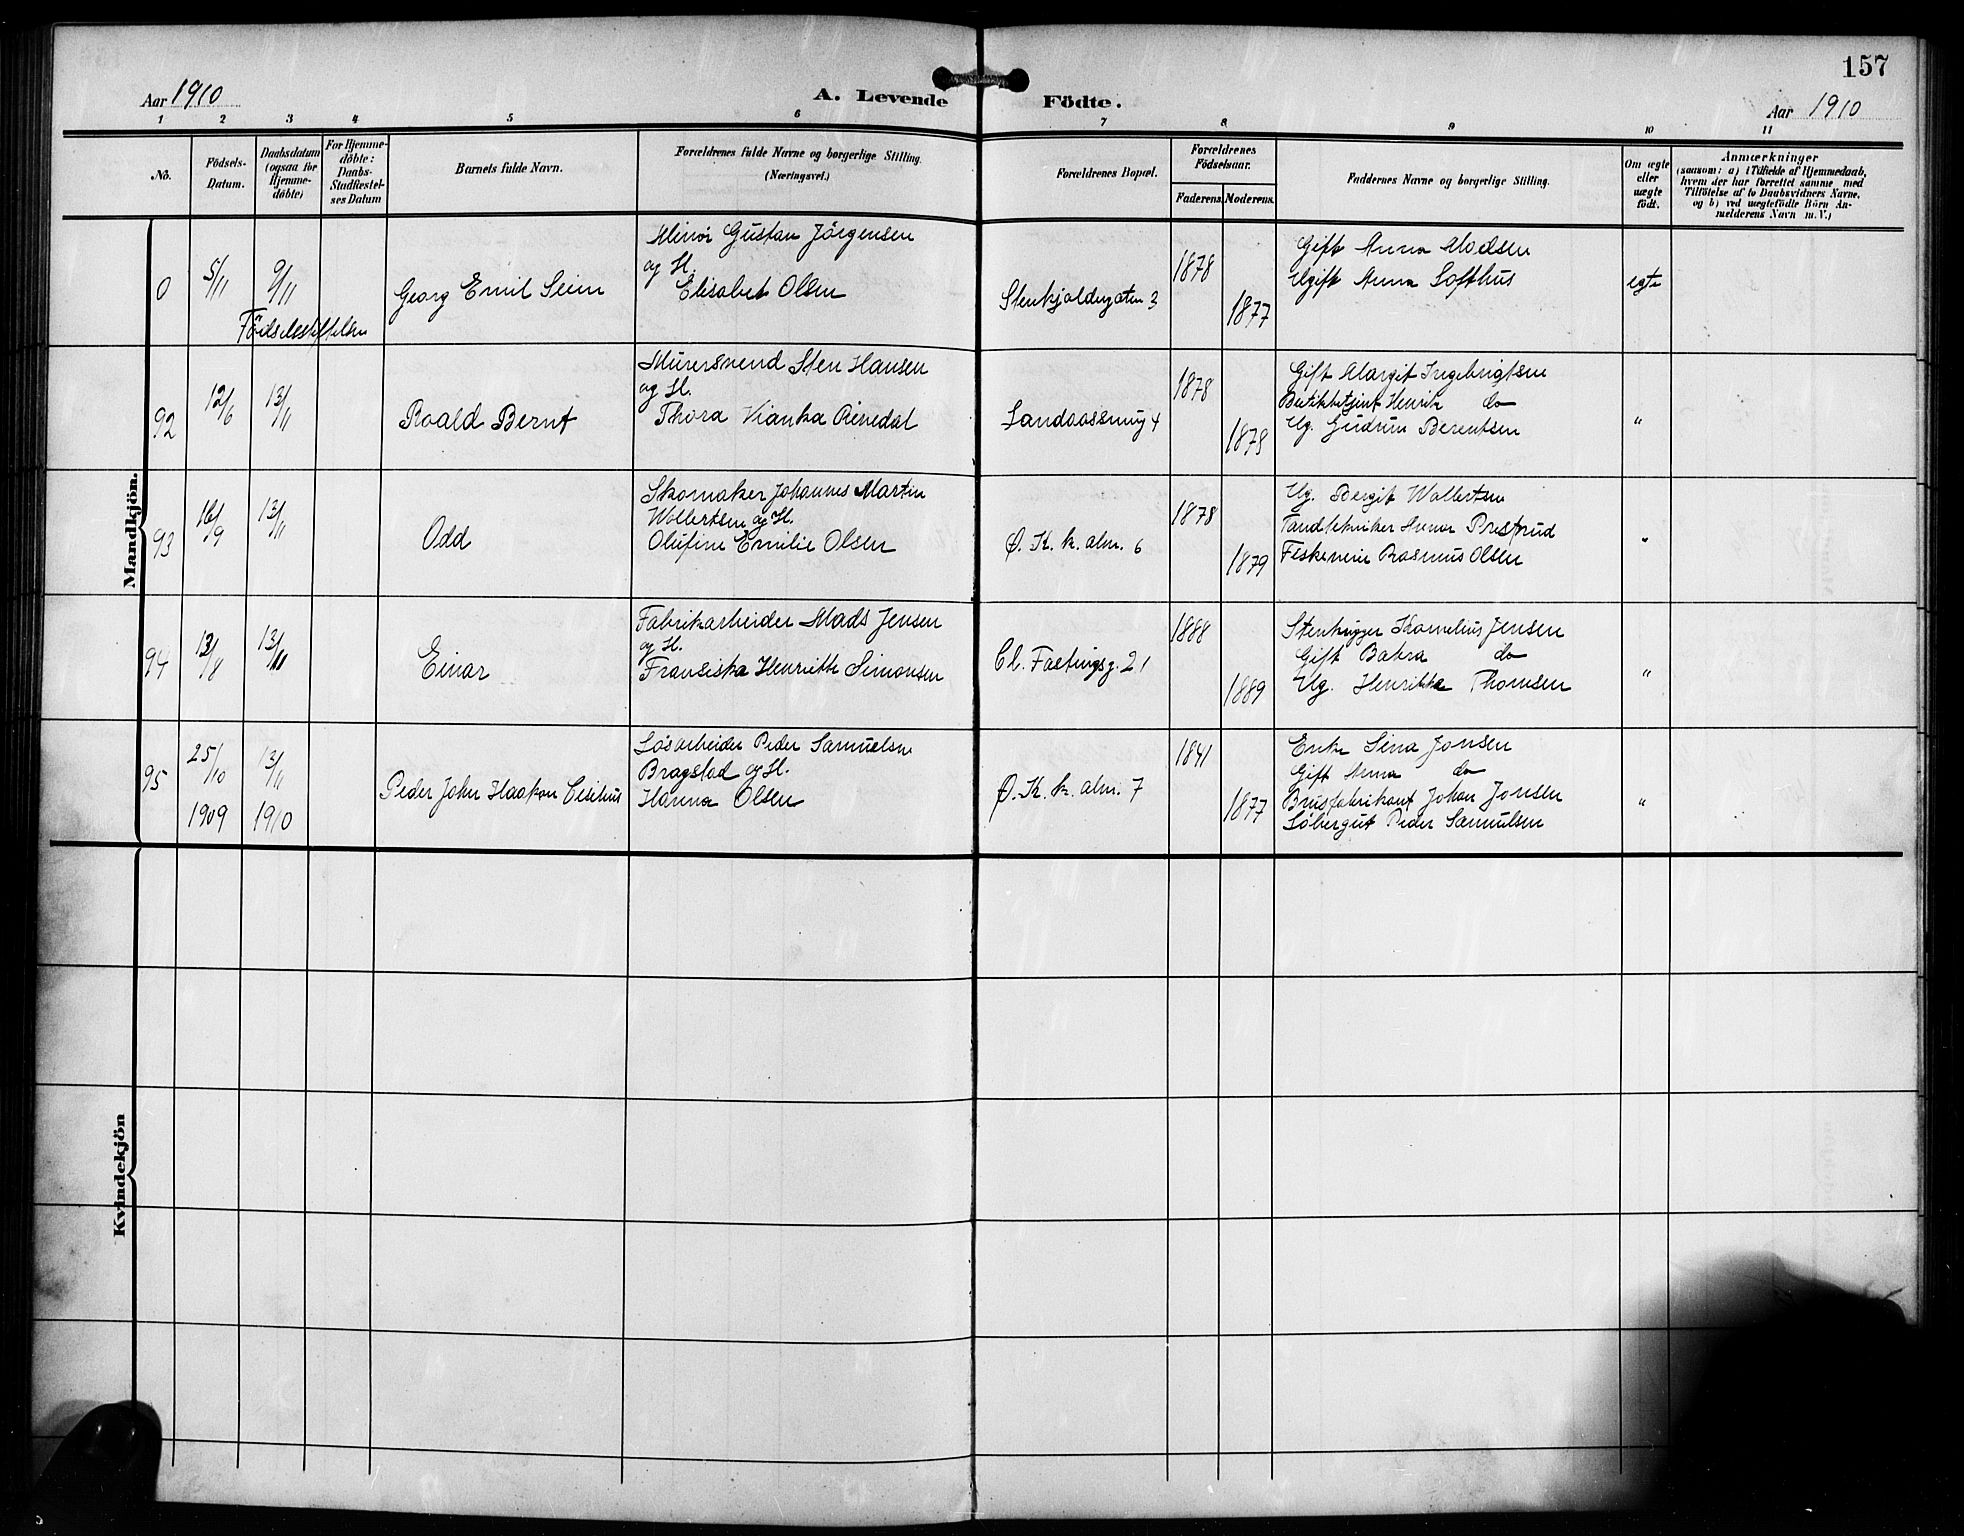 157
Aar 1910
A. Levende Födte.
Aar 1910
1 2 3 4 5 6 7 8 9 10 11
No.
Födsels-
Datum.
Daabsdatum
(ogsaa for
Hjemme-
döbte)
For Hjemme-
döbte:
Daabs-
Stadfæstel-
ses Datum
Barnets fulde Navn.
Forældrenes fulde Navne og borgerlige Stilling.
(Næringsvei.)
Forældrenes Bopæl.
Forældrenes
Födselsaar.
Faderens. Moderens.
Faddernes Navne og borgerlige Stilling.
Om ægte
eller
uægte
født.
Anmærkninger
(saasom: a) i Tilfælde af Hjemmedaab,
hvem der har forrettet samme med
Tilföielse af to Daabsvidners Navne,
og b) ved uægtefödte Börn An-
melderens Navn m. V.)
Mandkjön.
0
5/11
9/11
Födselsstiftelsen
Georg Emil Seim
Minör Gustav Jörgensen
og H.
Elisabet Olsen
Stenkjeldergaten 3
1878
1877
Gift Anna Madsen
Ugift Anna Lofthus
egte
92
12/6
13/11
Roald Bernt
Murersvend Sten Hansen
og H.
Thora Vianka
Landaassvung 4
1878
1878
Gift Margit Ingebrigtsen
Henrik do
Ug. Gudrun Berentsen
"
93
16/9
13/11
Odd
Skomaker Johannes Martin
Wollertsen og H.
Olufine Emilie Olsen
Ø. K. k. alm. 6
1878
1879
Ug. Bergit Wollertsen
Tandtekniker Prestrud
Rasmus Olsen
"
94
13/8
13/11
Einar
Fabrikarbeider Mads Jensen
og H.
Franciska Henriette Simonsen
Cl. Fastingsg. 21
1888
1889
Stenhugger Kornelius Jensen
Gift do
Ug. Henrikka Thomsen
"
95
25/10
13/11
1909 1910
Peder John Haakon
Løsarbeider Peder Samuelsen
Bragstad og H.
Hanna Olsen
Ø. K. k. alm. 7
1841
1877
Enke Sina Jonsen
Gift Anna do
Brusfabrikant Johan Jonsen
Løbergut Peder Samuelsen
"
Kvindekjön